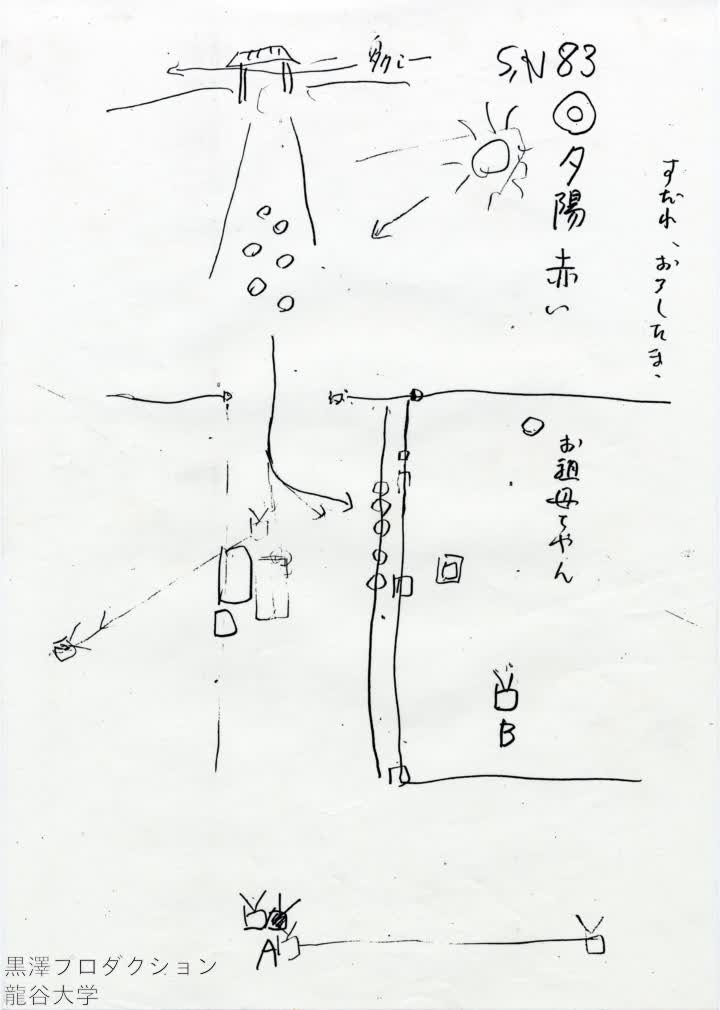 S,N 83
◎夕陽 赤い
すだれ、おろしたまゝ
お祖母ちゃん
B
A
黒澤プロダクション
龍谷大学